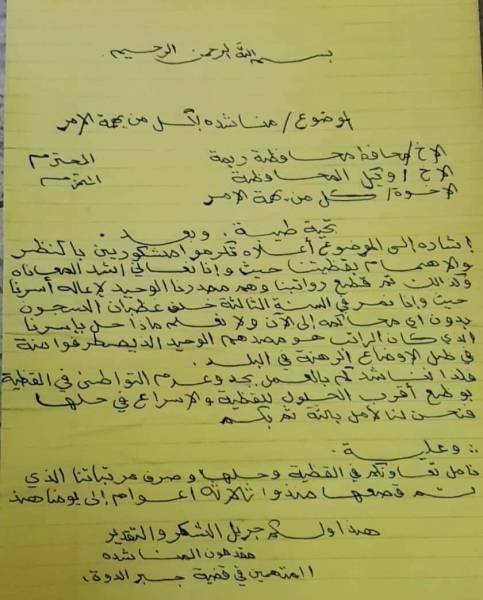 بسم الله الرحمن الرحيم
الموضوع / مناشده لكل من يهمة الامر
الاخ / محافظ محافظة ريمة المحترم
الاخ / وكيل المحافظة المحترم
الاخوة / كل من يهمة الامر
تحية طيبة . وبعد .
إشاده إلى الموضوع أعلاه تكرمو امشكورين بالنظر
والاهتمام بقضيتنا حيث وإنا نعاني اشد المعاناه
وذالك تم قطع رواتبنا وهو مصدرنا الوحيد لإعاله أسرنا
حيث وإنا نمر في السنة الثالثة خلف قطبان السجون
بدون اي محاكمه إلى الآن ولا نعلم ماذا حل بإسرنا
الذي كان الراتب هو مصدهم الوحيد
في ظل الاوضاع الرهنة في البلد .
فلذا نناشد كم بالعمل بجد وعدم التواطئ في القظية
بوظع أقرب الحلول للقظية والاسراع في حلها
فنحن لنا الأمل بالله ثم بكم
∴ وعلية .
نامل تعاونكم في القظية وحلها وصرف مرتباتنا الذي
تم قصعها منذوا ثالاثه اعوام إلى يومنا هذ
هذا ولكم جزيل الشكر والتقدير
مقدمون المناشده
المتهمين في قضية جبر الدوة .